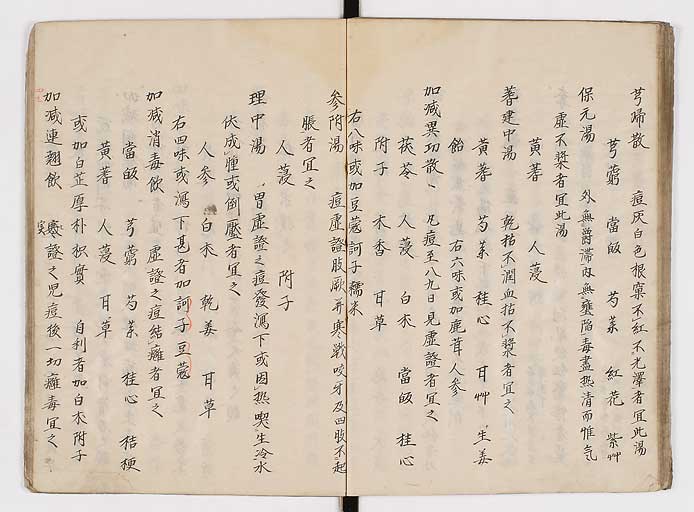 芎歸散　痘灰白色根窠不紅不光澤者宜此湯
芎藭　當皈　芍藥　紅花　紫艸
保元湯　外無爵滯内無壅陷毒盡热清而惟气
虚不漿者宜此湯
黄蓍　人蓡
蓍建中湯　乾枯不潤血拈不漿者宜之
黄蓍　芍薬　桂心　甘艸　生姜
飴　右六味或如鹿茸人参
加減異功散　凡痘至八九日見虚證者宜之
茯苓　人蓡　白朮　當皈　桂心
附子　木香　甘草
右八味或如豆蔻訶子糯米
参附湯　痘虚證肢厥并寒戰咬牙及四肢不起
脹者宜之
人蓡　附子
理中湯　胃虚證之痘發瀉下或因热喫生冷水
伏成㽱或倒靨者宜之
人参　白朮　乾姜　甘草
右四味或瀉下甚者加訶子豆蔻
加減消毒飲　虚證之痘結癰者宜之
當皈　芎藭　芍薬　桂心　桔梗
黄蓍　人蓡　甘草
或如白芷厚朴枳實　自利者加白朮附子
加減連翹飲　寒證之児痘後一切癰毒宜之